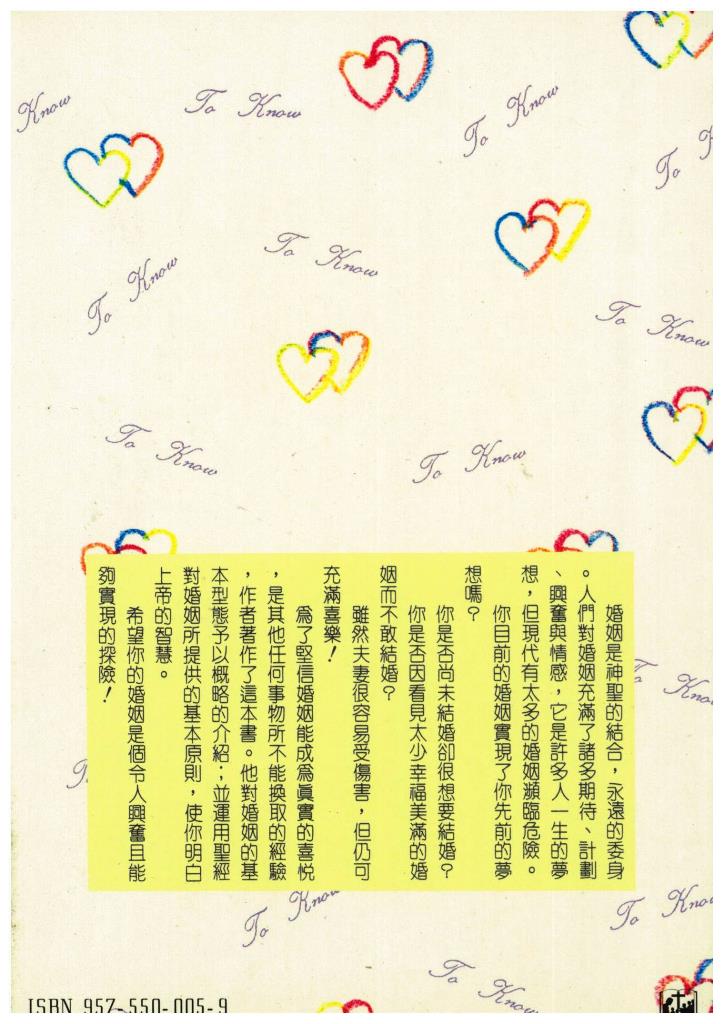 Know
To Know
To Know
To
To Know
To Know
To Know
To Know
To Know
婚姻是神聖的結合，永遠的委身
。人們對婚姻充滿了諸多期待、計劃
、興奮與情感，它是許多人一生的夢
想，但現代有太多的婚姻瀕臨危險。
你目前的婚姻實現了你先前的夢
想嗎？
你是否尚未結婚卻很想要結婚？
你是否因看見太少幸福美滿的婚
姻而不敢結婚？
雖然夫妻很容易受傷害，但仍可
充滿喜樂！
為了堅信婚姻能成為真實的喜悅
，是其他任何事物所不能換取的經驗
，作者著作了這本書。他對婚姻的基
本型態予以概略的介紹；並運用聖經
對婚姻所提供的基本原則，使你明白
上帝的智慧。
希望你的婚姻是個令人興奮且能
夠實現的探險！
Know
To Know
To Know
To Know
ISBN 957-550-005-9